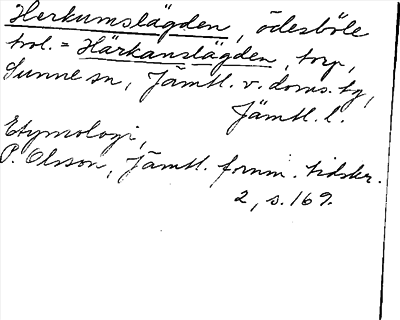 Herkumslägden, ödesböle
trol. = Härkanslägden, torp,
Sunne sn, Jämtl. v. doms. tg,
Jämtl. l.
Etymologi,
P. Olsson, Jämtl. fornm. tidskr.
2, s. 169.